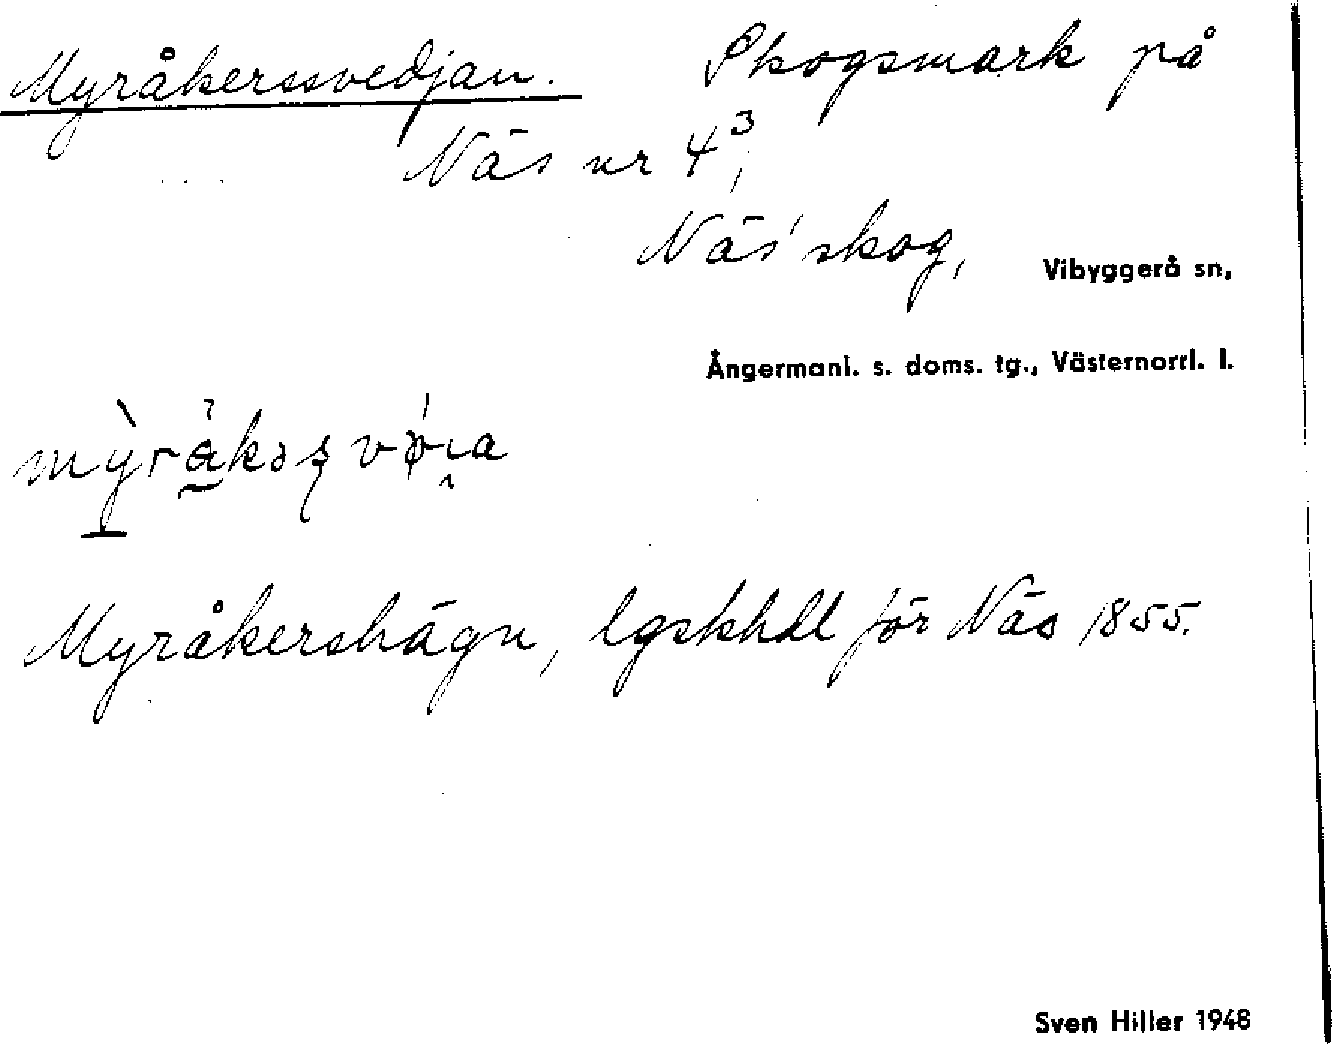 Myråkerssvedjan. Skogsmark på
Näs nr 4³,
Näs' skog, Vibyggerå sn,
Ångermanl. s. doms. tg., Västernorrl. l.
Myråkershägn, lgskhdl för Näs 1855.
Sven Hiller 1948